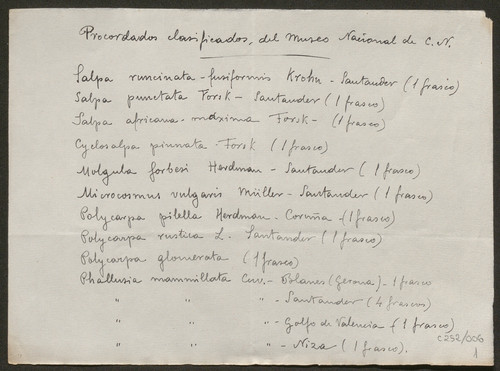 Procordados clasificados, del Museo Nacional de C. N.
Salpa runcinata - fusiformis Krohn - Santander (1 frasco)
Salpa punctata Forsk - Santander (1 frasco)
Salpa africana - máxima Forsk - (1 frasco)
Cyclosalpa pinnata - Forsk (1 frasco)
Molgula forbesi Herdman - Santander (1 frasco)
Microcosmus vulgaris Müller - Santander (1 frasco)
Polycarpa pilella Herdman - Coruña - (1 frasco)
Polycarpa rustica L. Santander (1 frasco)
Polycarpa glomerata (1 frasco)
Phallusia mammillata Cuv. - Blanes (Gerona) - 1 frasco
" " " - Santander (4 frascos)
" " " - Golfo de Valencia - (1 frasco)
" " " - Niza (1 frasco).
C252/006
1